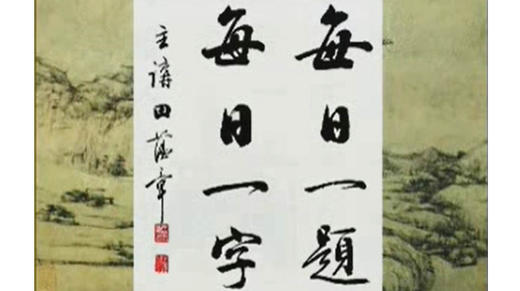 每日一题
每日一字
主讲田蕴章